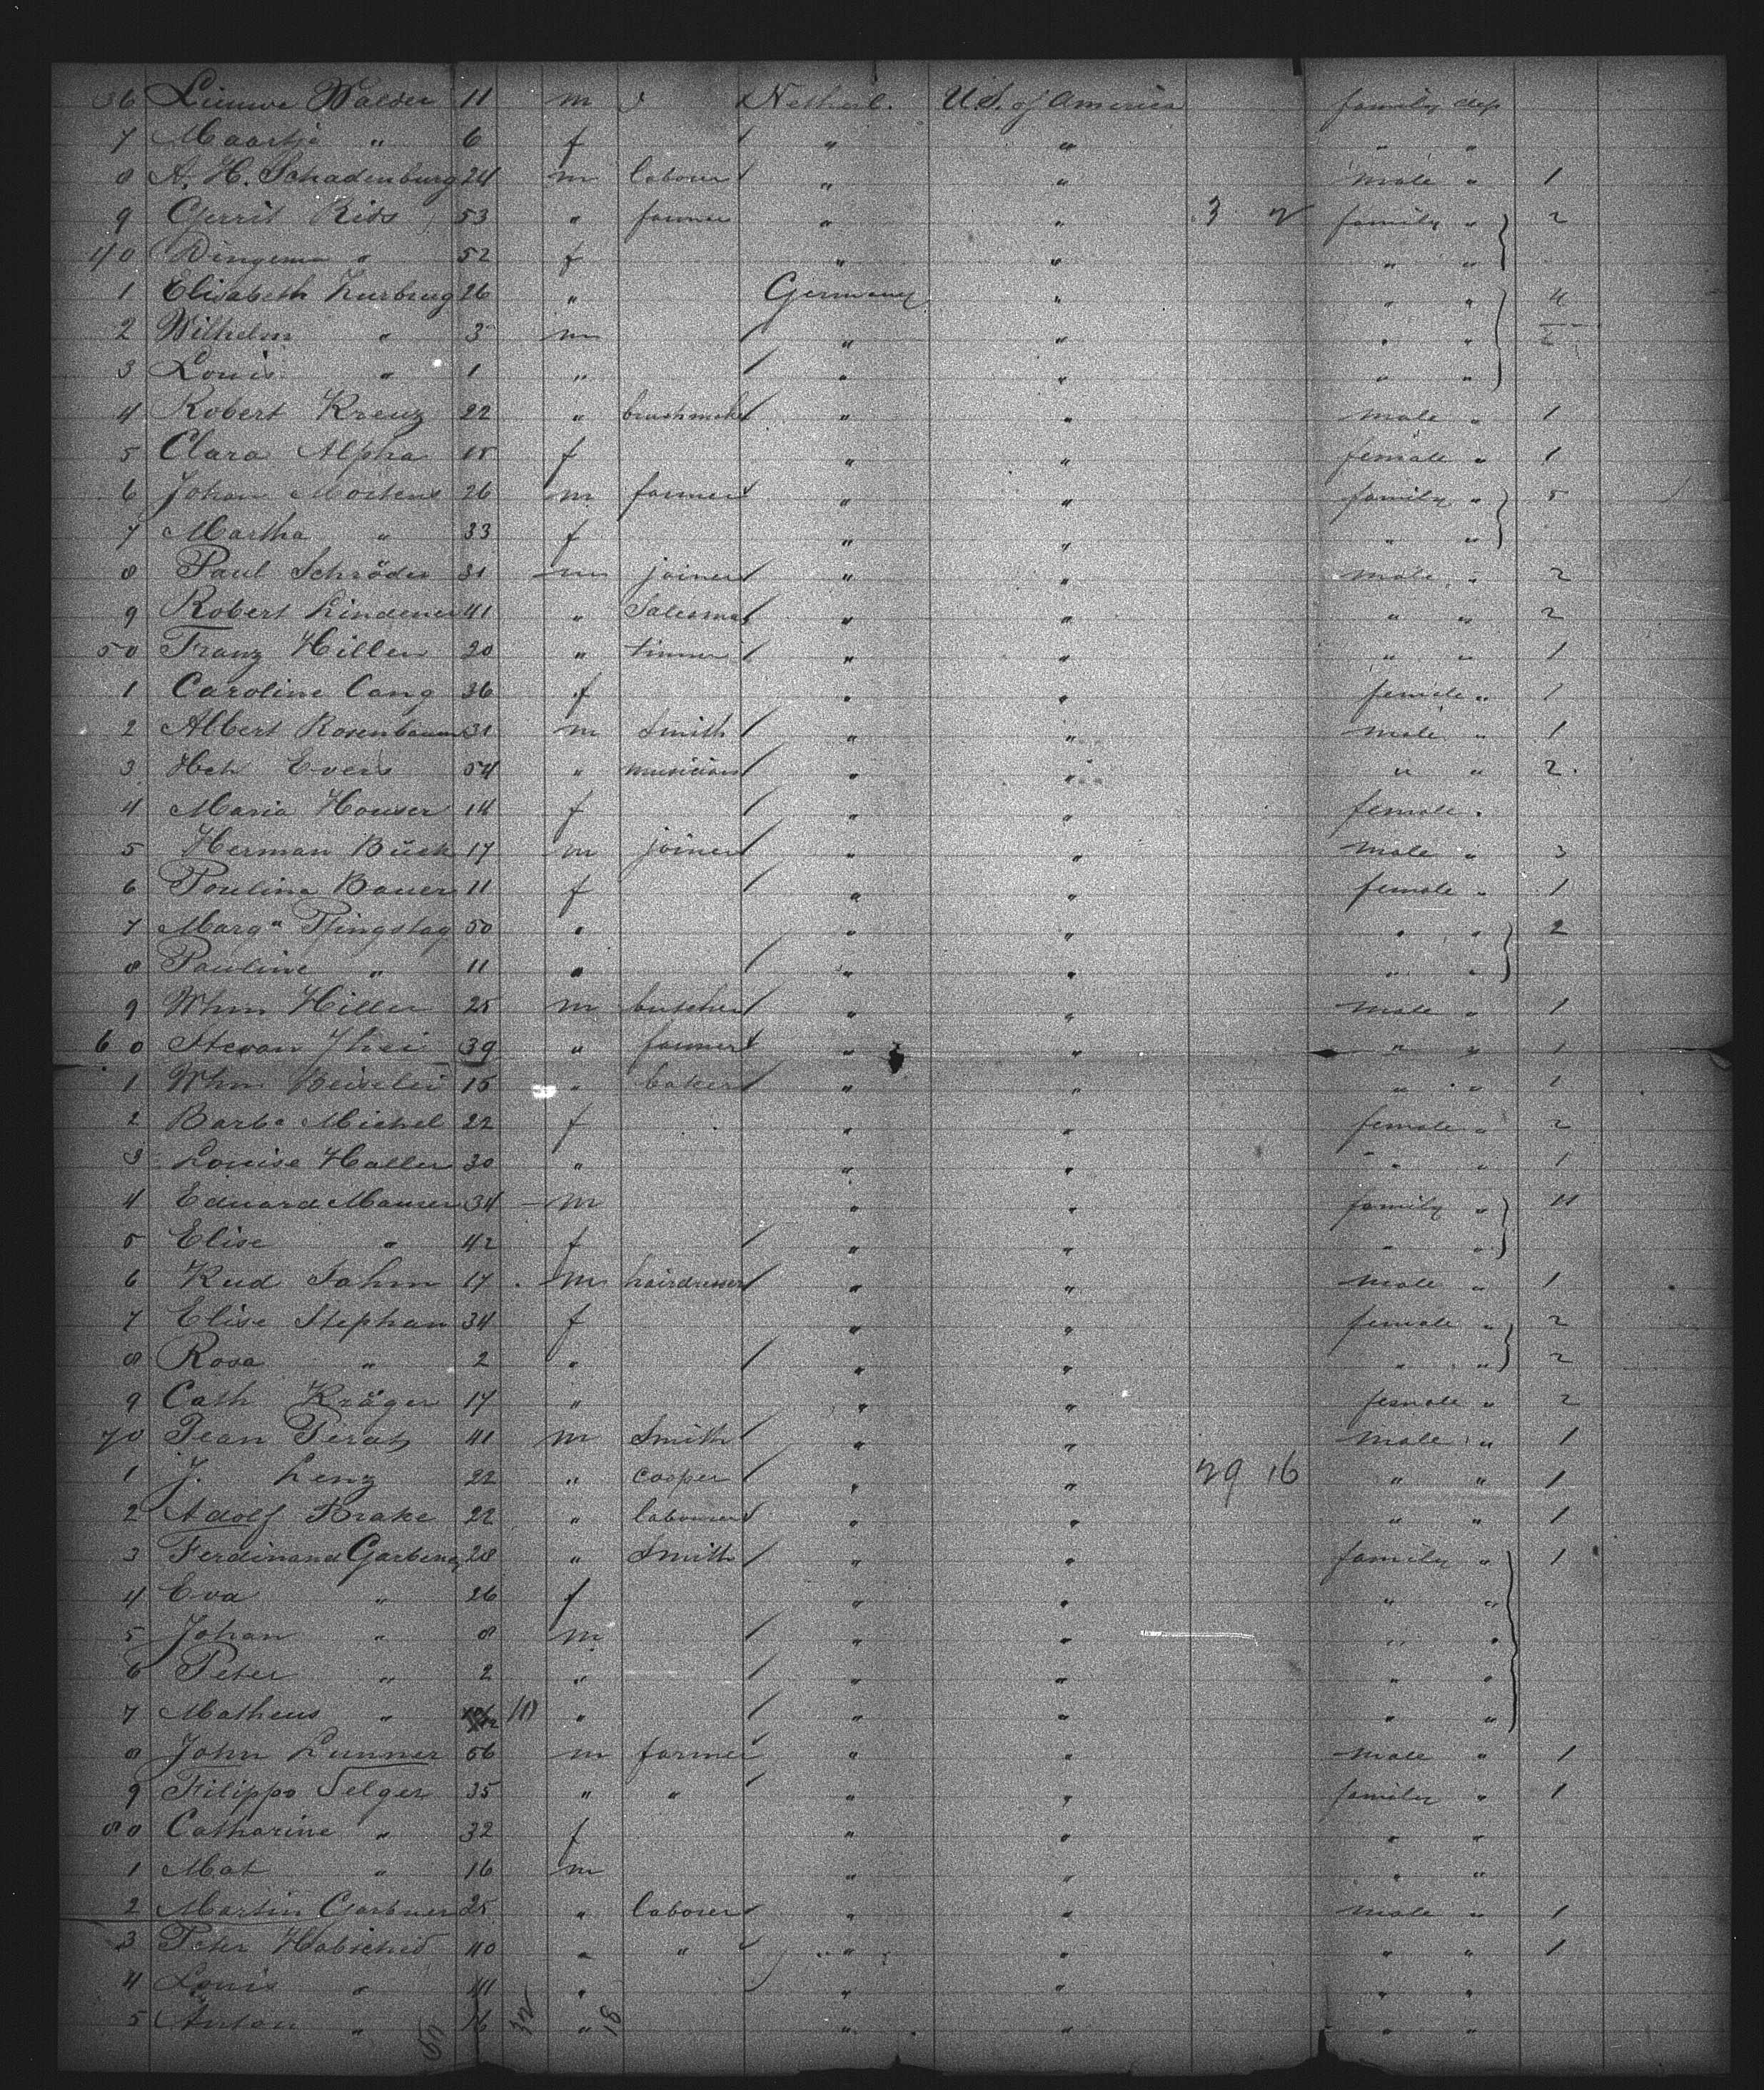 36 Lieuwe Walder 11 m Netherl. U.S. of America family dep
7 Maartje " 6 f " " " "
8 A. H. Schadenburg 24 m laborer " " male " 1
9 Gerrit Rids 53 " farmer " " 3 2 family " 2
40 Dingema " 52 f " " " "
1 Elisabeth Kurbrug 26 " Germany " " " 4
2 Wilhelm " 3 m " " " "
3 Louis " 1 " " " " "
4 Robert Kreuz 22 " brushmaker " " male " 1
5 Clara Alpha 18 f " " female " 1
6 Johan Mortens 26 m farmer " " family " 5
7 Martha " 33 f " " " "
8 Paul Schröder 31 m joiner " " male " 2
9 Robert Lindener 41 " Salesman " " " " 2
50 Franz Hiller 20 " tinner " " " " 1
1 Caroline Cang 36 f " " female " 1
2 Albert Rosenbaum 31 m Smith " " male " 1
3 Hch Evers 54 " musician " " " " 2
4 Maria Houser 14 f " " female "
5 Herman Bück 17 m joiner " " male " 3
6 Paulina Bauer 11 f " " female " 1
7 Marga Pfingstag 50 " " " " " 2
8 Pauline " 11 " " " " "
9 Whm Hiller 25 m butcher " " male " 1
60 Stevan 39 " farmer " " " " 1
1 Whm Beisler 15 " baker " " " " 1
2 Barba Michel 22 f " " female " 2
3 Louise Haller 30 " " " " " 1
4 Eduard Mauser 34 m " " family " 4
5 Elise " 42 f " " " "
6 Rud Sahm 17 m hairdresser " " male " 1
7 Elise Stephan 34 f " " female " 2
8 Rosa " 2 " " " " " 2
9 Cath Kräger 17 " " " female " 2
70 Jean Perat 41 m Smith " " male " 1
1 J. Lenz 22 " cooper " " 29 16 " " 1
2 Adolf Brake 22 " labourer " " " " 1
3 Ferdinand Garbena 28 " Smith " " family " 1
4 Eva " 26 f " " " "
5 Johan " 8 m " " " "
6 Peter " 2 " " " " "
7 Matheus " " " " " "
8 John Lunner 56 m farmer " " male " 1
9 Filippo Selger 35 " " " " family " 1
80 Catharine " 32 f " " " "
1 Mat " 16 m " " " "
2 Martin Gartner 25 " laborer " " male " 1
3 Peter Habschid 40 " " " " " " 1
4 Louis " 41 " " " " "
5 Anton " 16 " " " " "